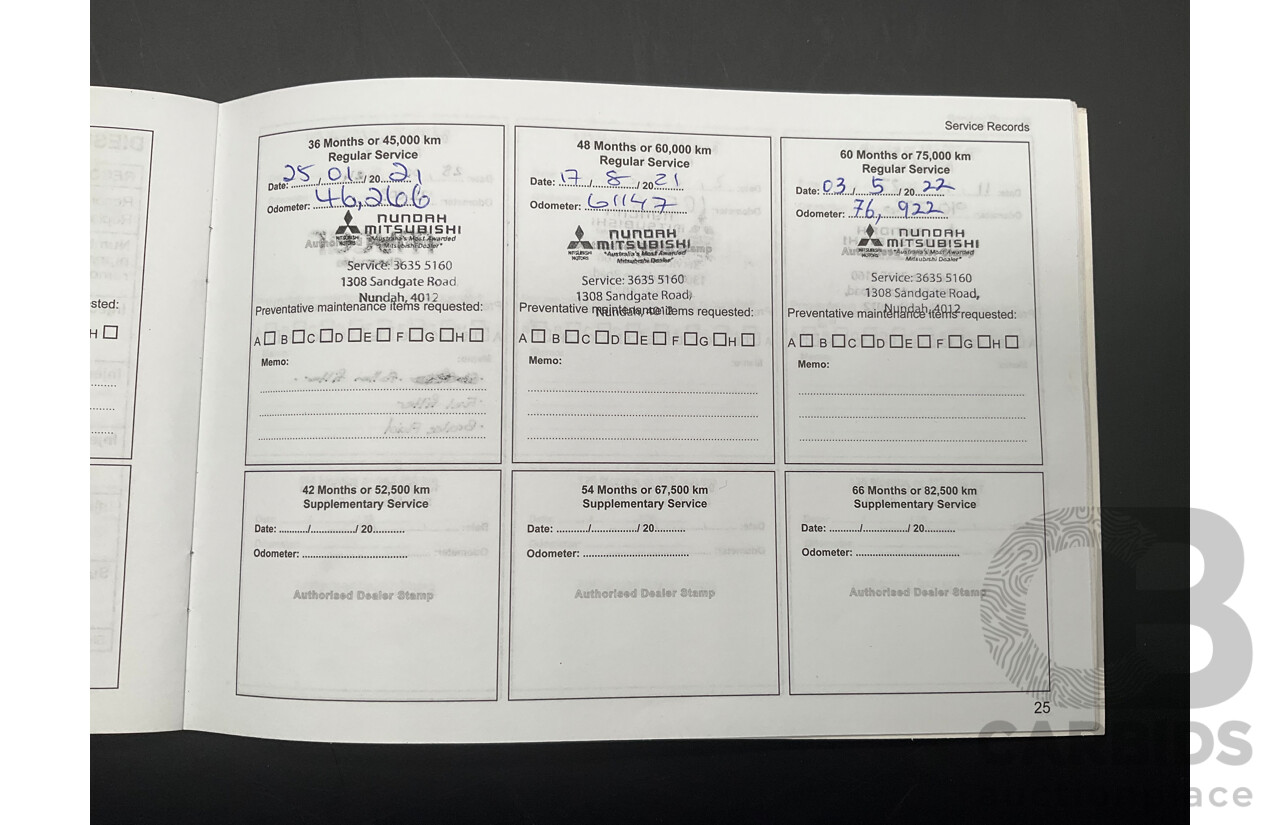 Service Records
36 Months or 45,000 km
Regular Service
Date: 25, 01, / 20 21
Odometer: 46,266
NUNDAH
MITSUBISHI
MITSUBISHI MOTORS
"Australia's Most Awarded
Mitsubishi Dealer"
Service: 3635 5160
1308 Sandgate Road
Nundah, 4012
Preventative maintenance items requested:
A B C D E F G H
Memo:
48 Months or 60,000 km
Regular Service
Date: 17 / 8 / 20 21
Odometer: 61147
NUNDAH
MITSUBISHI
MITSUBISHI MOTORS
"Australia's Most Awarded
Mitsubishi Dealer"
Service: 3635 5160
1308 Sandgate Road,
Nundah, 4012
Preventative maintenance items requested:
A B C D E F G H
Memo:
60 Months or 75,000 km
Regular Service
Date: 03 / 5 / 20 22
Odometer: 76, 922
NUNDAH
MITSUBISHI
MITSUBISHI MOTORS
"Australia's Most Awarded
Mitsubishi Dealer"
Service: 3635 5160
1308 Sandgate Road,
Nundah, 4012
Preventative maintenance items requested:
A B C D E F G H
Memo:
sted:
H
42 Months or 52,500 km
Supplementary Service
Date: ........./................/ 20...........
Odometer: ....................................
Authorised Dealer Stamp
54 Months or 67,500 km
Supplementary Service
Date: ........./................/ 20...........
Odometer: ....................................
Authorised Dealer Stamp
66 Months or 82,500 km
Supplementary Service
Date: ........./................/ 20...........
Odometer: ....................................
Authorised Dealer Stamp
25
CB
CARBIDS
auctionplace